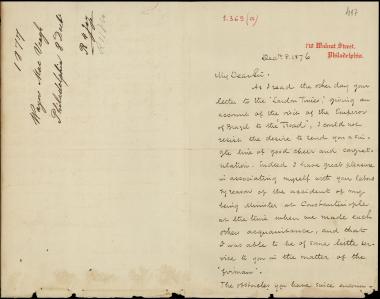 1877
Wayne Mac Veagh
Philadelphia 8 Dec
417
1.369 (a)
710 Walnut Street,
Philadelphia.
Dec. 8. 1876
My Dear Sir.
As I read the other day your
letter to the "London Times," giving an
account of the visit of the Emperor
of Brazil to the "Troad", I could not
resist the desire to send you a sin-
gle line of good cheer and congrat-
ulation. Indeed I have great pleasure
in associating myself with your labors
by reason of the accident of my
being Minister at Constantinople
at the time when we made each
others acquaintance, and that
I was able to be of some little ser-
vice to you in the matter of the
"firman".
The obstacles you have since encoun-